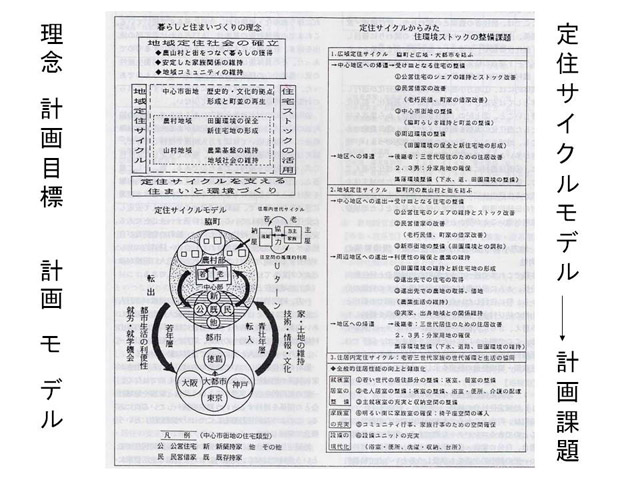 理念 計画目標 計画モデル
暮らしと住まいづくりの理念
地域定住社会の確立
◆農山村と街をつなぐ暮らしの獲得
◆安定した家族関係の維持
◆地域コミュニティの維持
地域定住サイクル
中心市街地 歴史的・文化的拠点
形成と町並の再生
農村地域 田園環境の保全
新住宅地の形成
山村地域 農業基盤の維持
地域社会の維持
住宅ストックの活用
定住サイクルを支える
住まいと環境づくり
定住サイクルモデル
脇町
住居内世代サイクル
若 老
納屋
協力
主屋
住空間の循環的利用
農村部
若 老
中心部
新
公 既 民
他
Uターン
転出
都市生活の利便性
就労・就学機会
若年層
都市
徳島
大都市
大阪 神戸
東京
転入
青壮年層
家・土地の維持
技術・情報・文化
凡 例 (中心市街地の住宅類型)
公 公営住宅 新 新築持家 他 その他
民 民営借家 既 既存持家
定住サイクルからみた
住環境ストックの整備課題
1.広域定住サイクル 脇町と広域・大都市を結ぶ
→中心地区への帰還→受け皿となる住宅の整備
①公営住宅のシェアの維持とストック改善
②民営借家の改善
(老朽民借、町家の借家改善)
③中心市街地の整備
(脇町らしさ維持と町並の整備)
④周辺環境の整備
(田園環境の保全と新住宅地の形成)
→地区への帰還 →後継者:三世代居住のための住居改善
2、3男:分家用地の確保
集落環境整備(下水、道、田園環境の整備)
2.地域定住サイクル 脇町内の農山村と街を結ぶ
→中心地区への進出→受け皿となる住宅の整備
①公営住宅のシェアの維持とストック改善
②民営借家の改善
(老朽民借、町家の借家改善)
③新市街地の整備(田園環境との調和)
→周辺地区への進出→利便性の確保と農業の維持
①田園環境の維持と新住宅地の形成
②進出先での住宅の取得
③進出先での農地の取得、借地
(農業生活の維持)
④実家、出身地域との関係維持
→地区への帰還 →後継者:三世代居住のための住居改善
2、3男:分家用地の確保
集落環境整備(下水、道路、田園環境の整備)
3.住居内定住サイクル:老若三世代家族の世代循環と生活の協同
◆全般的住居性能の向上と健康化
就寝室 ①若い世代の居住部分の整備:寝室、居室の整備
居室の ②老人居室の整備:寝室の整備、浴室・便所、介護の配慮
整備 ③主就寝室の充実と収納空間の整備
家族室 ④明るい南に家族室の確保:椅子座空間の導入
の充実 ⑤コミュニティ行事、家族行事のための空間確保
設備の ⑥設備ユニットの充実
現代化 (浴室・便所、洗濯・収納、台所)
定住サイクルモデル→計画課題